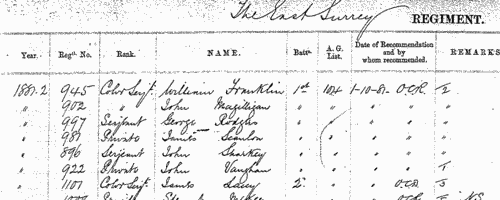 The East Surrey REGIMENT.
Year. Regtl. No. Rank. NAME. Battn A. G. List. Date of Recommendation and by whom recommended. REMARKS
1881-2 945 Color Serjt. William Franklin 1st 104 1-10-81 O.C.R. 2
" 902 " John Magilligan " " " " "
" 997 Serjeant George Rodgers " " " "
" 987 Private James Scanlon " " " "
" 896 Serjeant John Sharkey " " " "
" 922 Private John Vaughan " " " " 1
" 1101 Color Serjt. James Lacey 2 " " O.C.R. 3